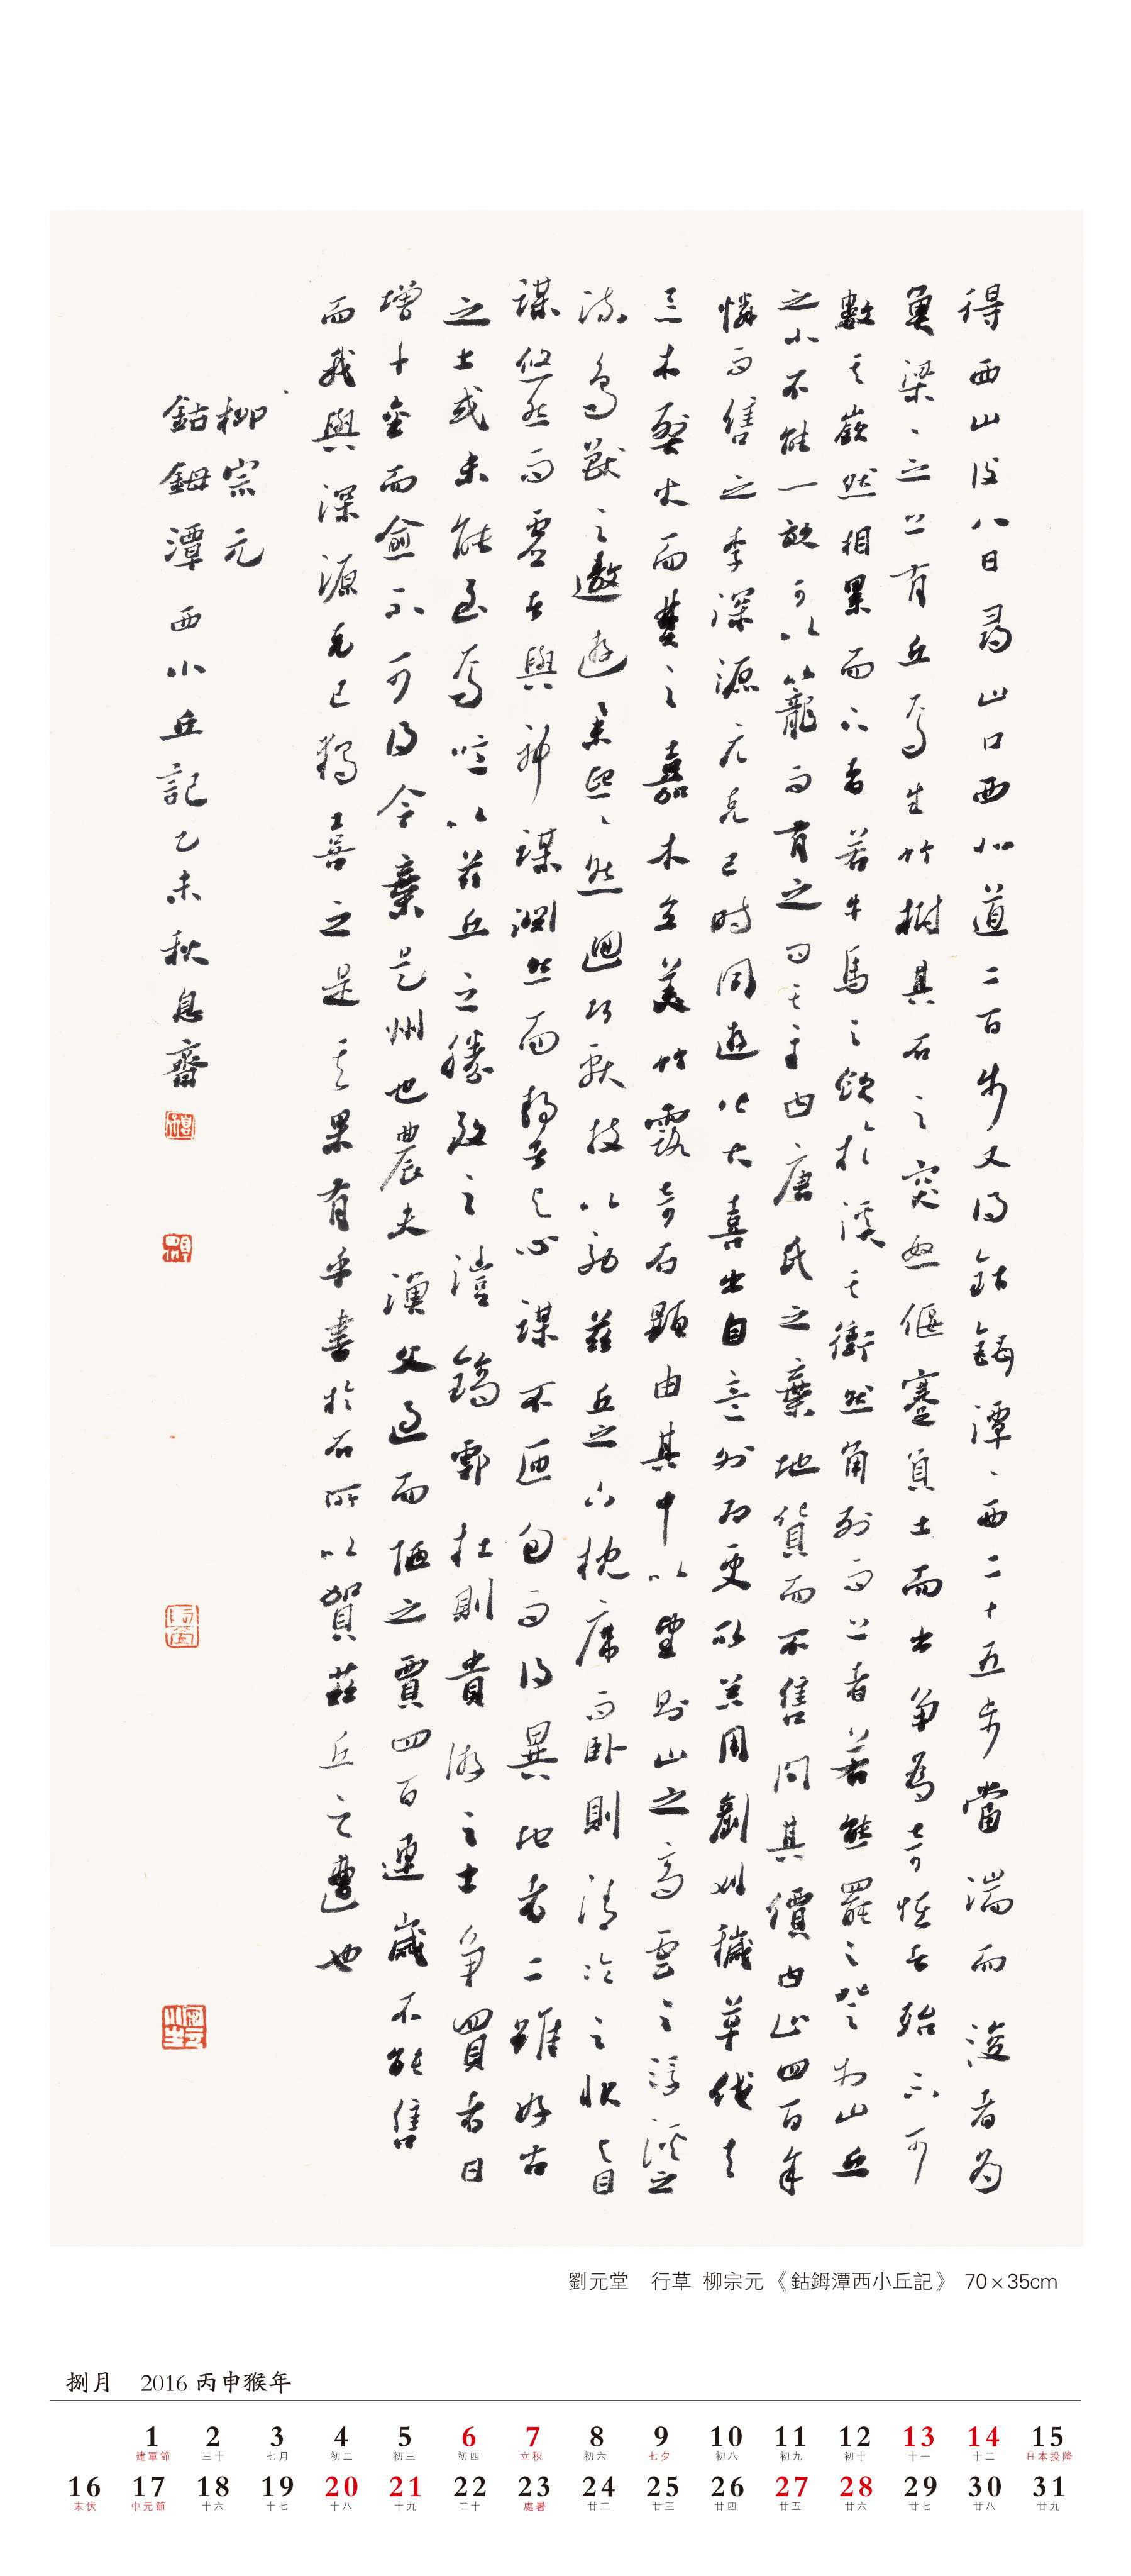 得西山後八日尋山口西北道二百步又得鈷鉧潭、西二十五步當湍而浚者為
魚梁、之上有丘焉生竹樹其石之突怒偃蹇負土而出爭為奇怪者殆不可
數其嶔然相累而下者若牛馬之飲於溪其衝然角列而上者若熊羆之登於山丘
之小不能一畝可以籠而有之問其主曰唐氏之棄地貨而不售問其價曰止四百余
憐而售之李深源元克己時同遊皆大喜出自意外即更取器用剷刈穢草伐去
惡木烈火而焚之嘉木立美竹露奇石顯由其中以望則山之高雲之浮溪之
流鳥獸之遨遊舉熙、然迴巧獻技以效茲丘之下枕席而臥則清泠之狀與目
謀悠然而虛者與神謀淵然而靜者與心謀不匝旬而得異地者二雖好古
之士或未能至焉噫以茲丘之勝致之灃鎬鄠杜則貴游之士爭買者日
增千金而愈不可得今棄是州也農夫漁父過而陋之賈四百連歲不能售
而我與深源克己獨喜之是其果有乎書於石所以賀茲丘之遭也
柳宗元
鈷鉧潭西小丘記乙未秋息齋
劉元堂 行草 柳宗元《鈷鉧潭西小丘記》 70×35cm
捌月 2016 丙申猴年
1 2 3 4 5 6 7 8 9 10 11 12 13 14 15
建軍節 三十 七月 初二 初三 初四 立秋 初六 七夕 初八 初九 初十 十一 十二 日本投降
16 17 18 19 20 21 22 23 24 25 26 27 28 29 30 31
末伏 中元節 十六 十七 十八 十九 二十 處暑 廿二 廿三 廿四 廿五 廿六 廿七 廿八 廿九